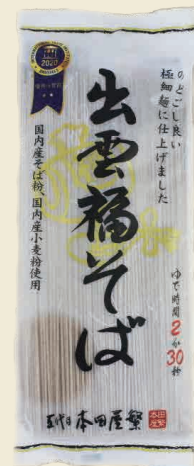 のどごし良い
極細麺に仕上げました
2020
出雲福そば
国内産そば粉、国内産小麦粉使用
ゆで時間2分30秒
五代目 本田屋繁